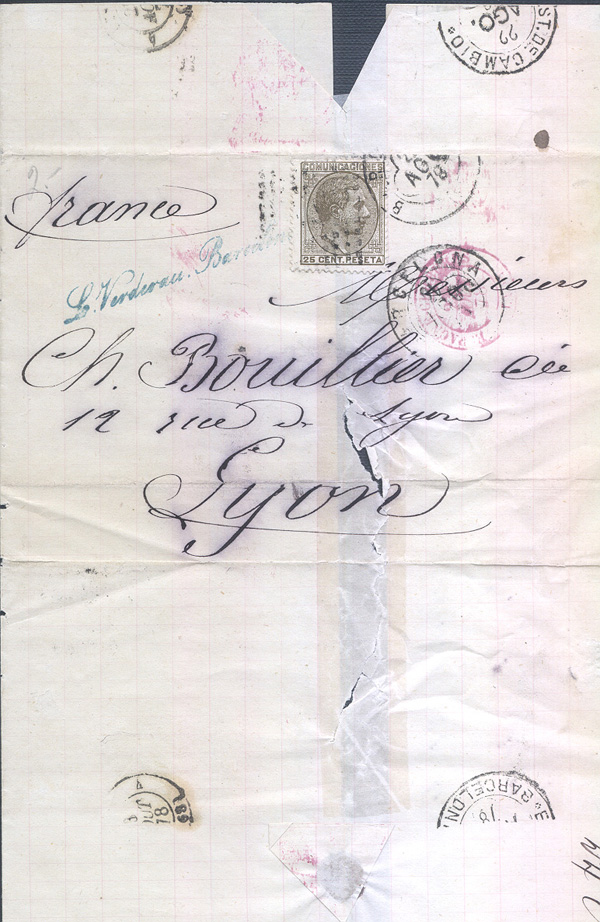 22
AGO.
EST. DE CAMBIO
COMUNICACIONES
AGO
78
25 CENT. PESETA
france
L. Verderau. Barcelona
Messieurs
Ch. Bouillier Cie
12 rue de Lyon
Lyon
78
BARCELON